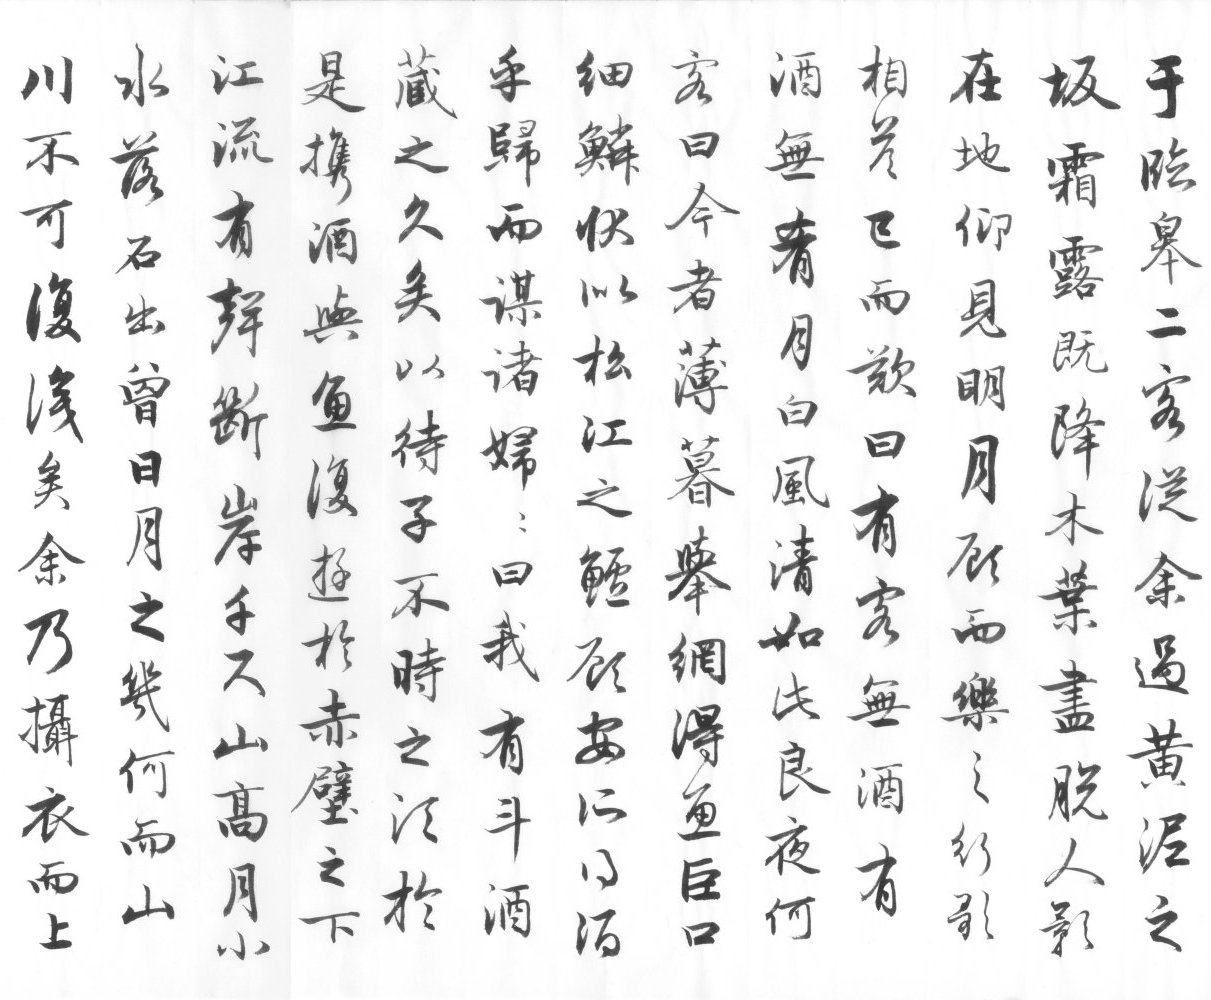 于臨皋二客從余過黃泥之
坂霜露既降木葉盡脫人影
在地仰見明月顧而樂之行歌
相答已而歎曰有客無酒有
酒無肴月白風清如此良夜何
客曰今者薄暮舉網得魚巨口
細鱗狀似松江之鱸顧安所得酒
乎歸而謀諸婦〻曰我有斗酒
藏之久矣以待子不時之須於
是携酒與魚復遊於赤壁之下
江流有聲斷岸千尺山高月小
水落石出曾日月之幾何而山
川不可復識矣余乃攝衣而上